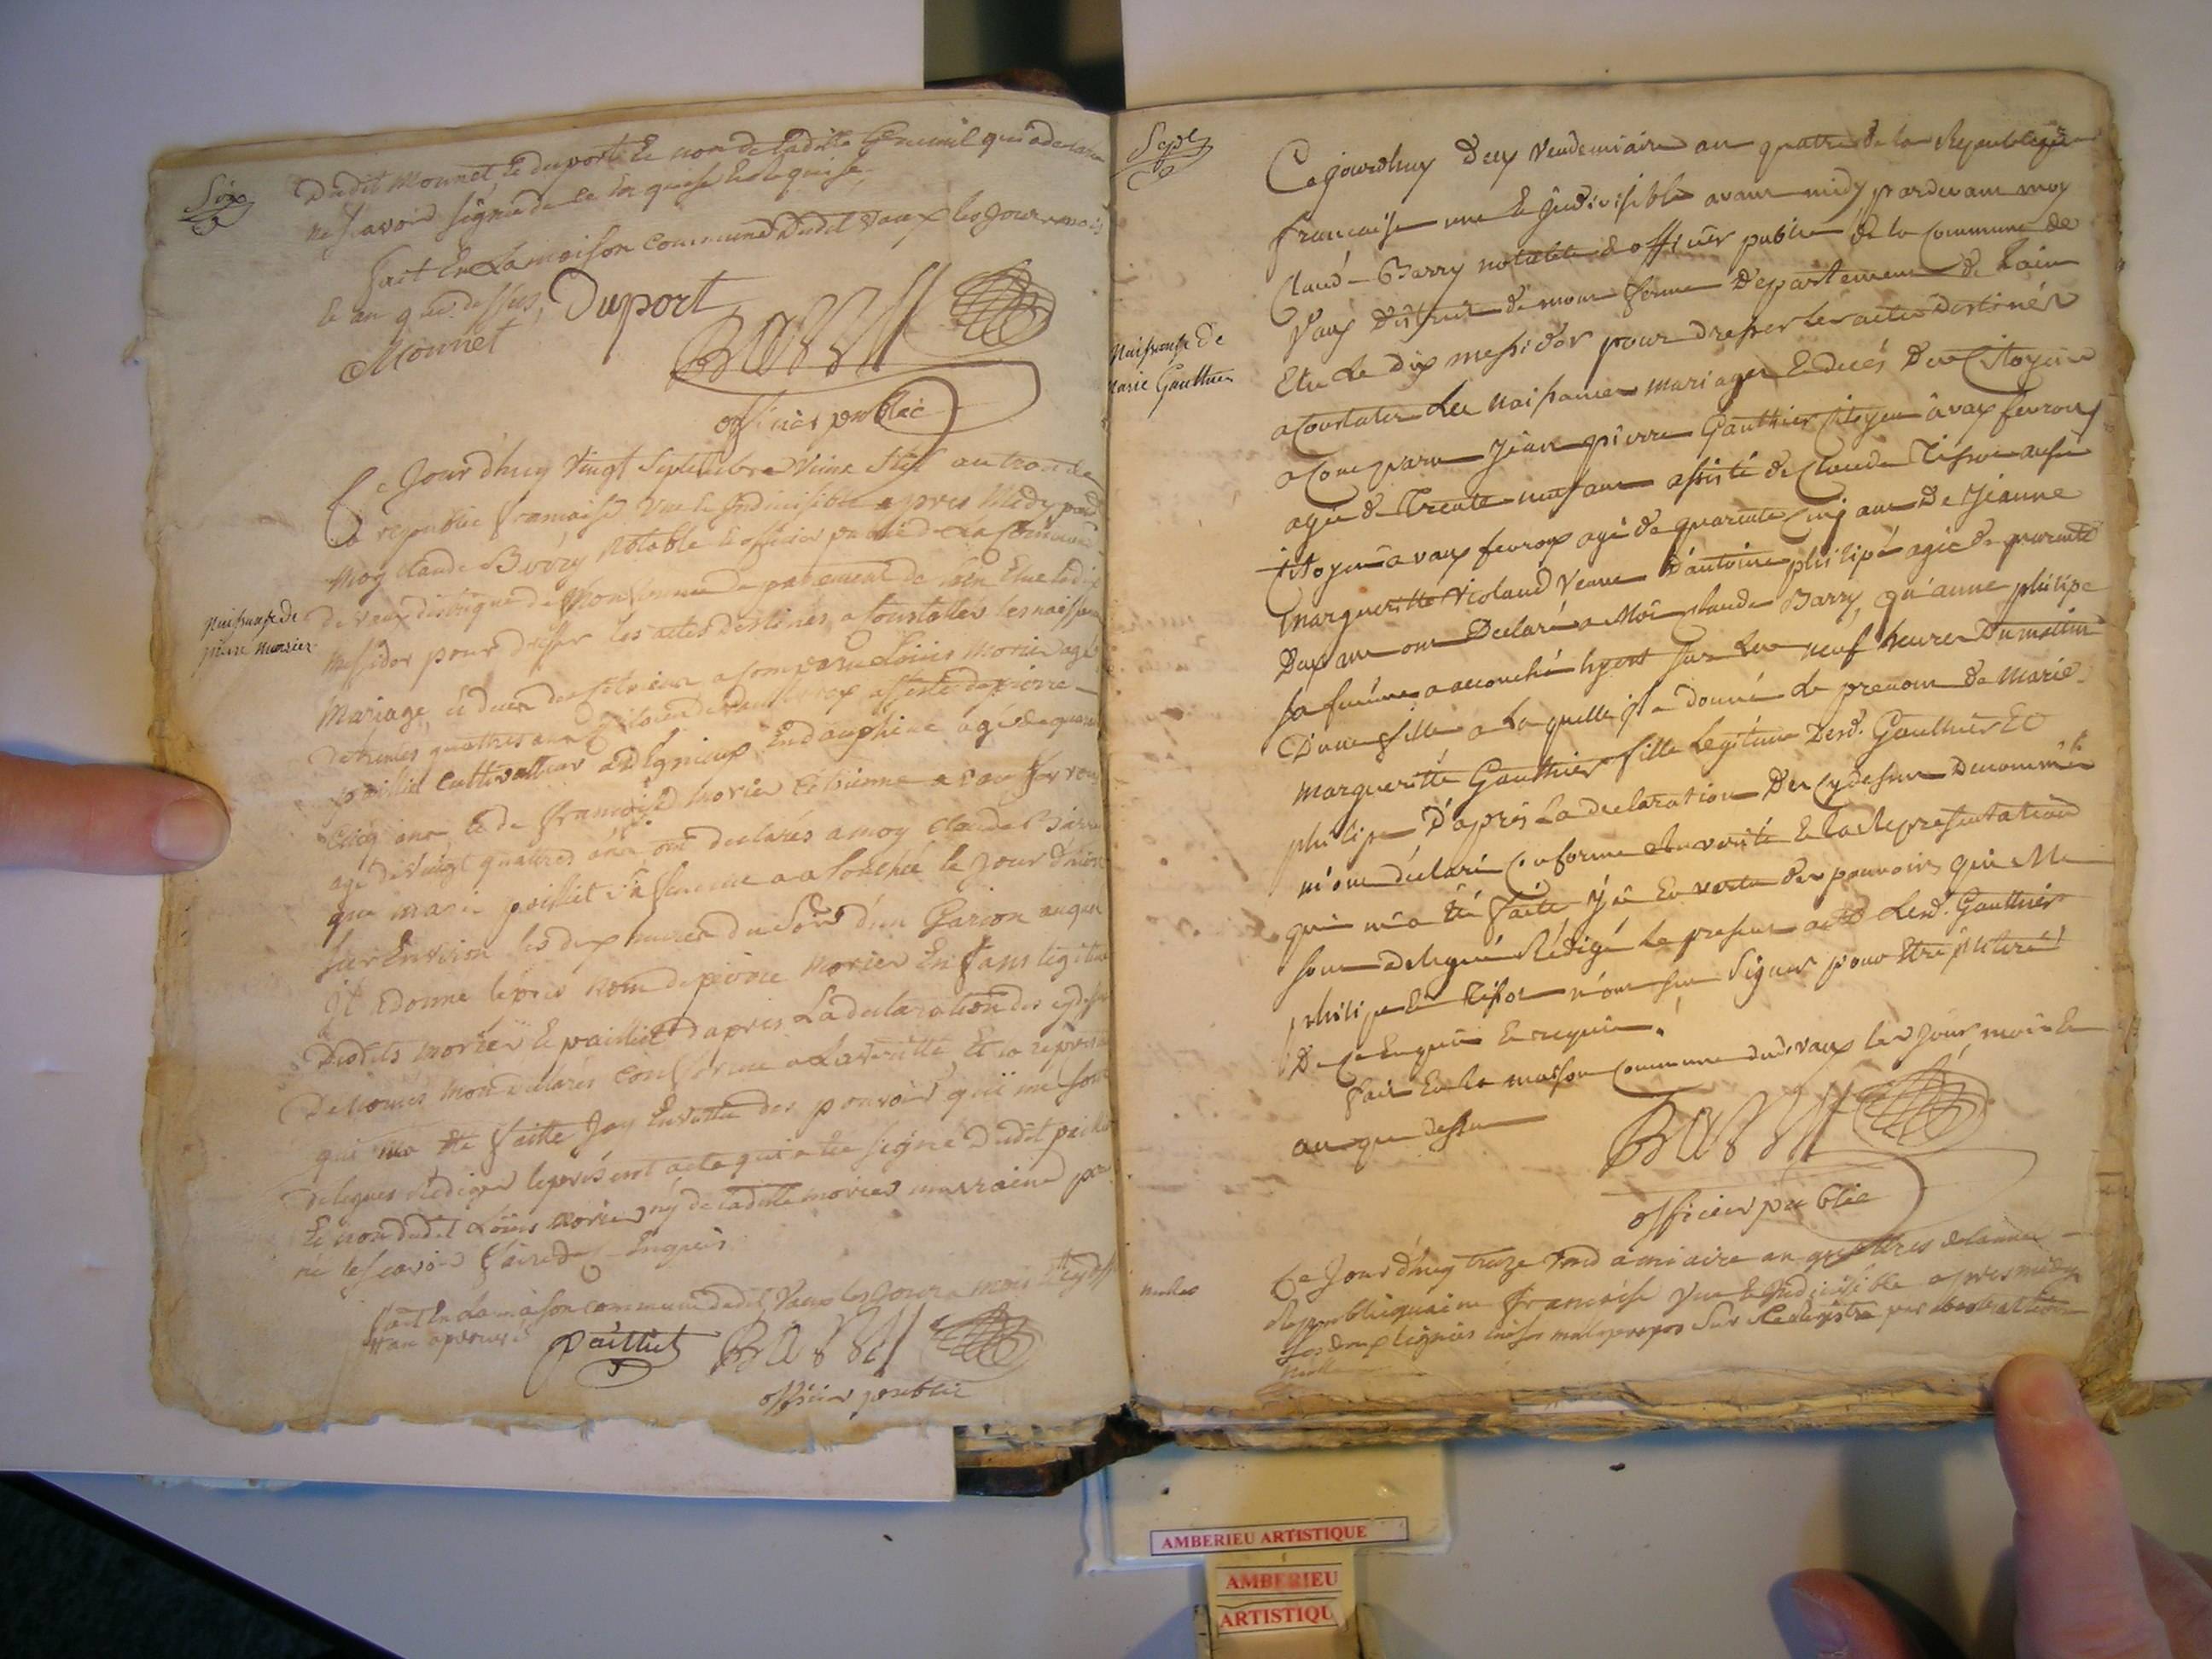 Six
Dudit Mounet et duport et non de ladite qui a declaré
ne scavoir signer de ce enquise et requise
fait en la maison commune dudit vaux les jour mois
et an que dessus, Duport
Mounet
Barry
officier public
Ce Jourdhuy vingt Septembre vieux Stil an trois de
la republic francaise une et indivisible apres Midy pard
moy claude Barry Notable et officier public de la commune
de vaux district de Montferme departement de lain Elue le dix
Naissance de
pierre morier
messidor pour dresser les actes destinés a constatter les naissances
Mariage, et deces des citoiens a comparu Louis morier agé
de trentes quattres ans citoien de vaux fevroux assisté de pierre
paillet cultivatteur a en dauphiné agé de quarante
cinq ans et de francoise morier citoienne a vaux fevroux
agé de vingt quattres ans, ont declarés a moy claude Barry
que marie paillet sa femme a acouchée le jour d'hier
sur environ les dix heures du Soir d'un Garcon auquel
Il a donné le pré nom de pierre morier Enfans legitime
Desdits morier et paillet d'apres La declaration des cydessus
denomés mon declarés conforme a La veritté et la represen
qui ma été faitte Jay En vertu des pouvoirs qui me sont
delegués Rediger le present acte qui a été signé Dudit paillet
Et non dudit Louis morier ny de ladite morier marraine pour
ne le scavoir faire de Enquis
fait En La maison commune dudit Vaux les Jour mois
et an
paillet Barry
officier public
Sept
Cejourdhuy deux Vendemiaire an quatre de la Republique
francaise une et indivisible avant midy pardevant moy
Claude Barry notable et officier public de la commune de
Vaux District de mont ferme Departement de Lain
Naissance de
Marie Gauthier
Elu Le dix messidor pour dresser les actes destinés
a Constater Les Naissances mariages et decés Des Citoyens
a Comparu Jean pierre Gauthier citoyen à vaux fevroux
agé de Trente neuf ans assisté de Claude Tissot aussi
citoyen a vaux fevroux agé de quarante cinq ans De Jeanne
Marguerithe Violand Veuve D'antoine philipe agée de quarante
Deux ans ont Declaré a Moi Claude Barry, qu'anne philipe
sa femme a accouché hyert sur Les neuf heures Du mattin
D'une fille a Laquelle Jl a donné Le prenom de Marie
Margueritte Gauthier fille Legitime Desd. Gauthier Et
philipe D'après La declaration Des Cydessus Denommés
m'ont déclaré Conforme a la verité Et la Representation
qui m'a été faite J'ai En vertu des pouvoirs qui Me
sont delegués Rédigé Le present acte Lesd. Gauthier
philipe et Tissot n'ont su Signer pour Etre illiteré
De ce Enquis Et requis.
fait En la maison commune dud. vaux les jour mois Et
an que dessus
Barry
officier public
Ce Jourd'huy treize vendémiaire an quattres de lannée
Republiquaine francaise une et Indivisible apres midy
mal apropos Sur Le Registre par
nulle
AMBERIEU ARTISTIQUE
AMBERIEU
ARTISTIQU